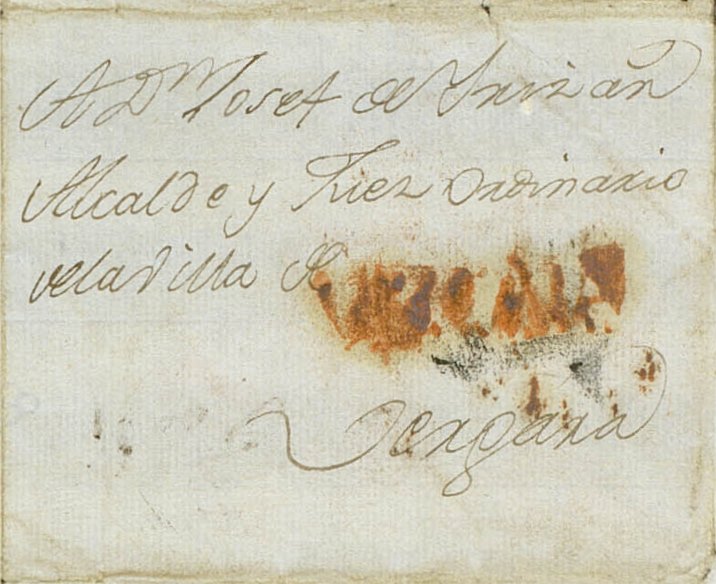 A Dn Josef de Yrizan
Alcalde y Juez ordinario
de la Villa de
VIZCAIA
Vergara